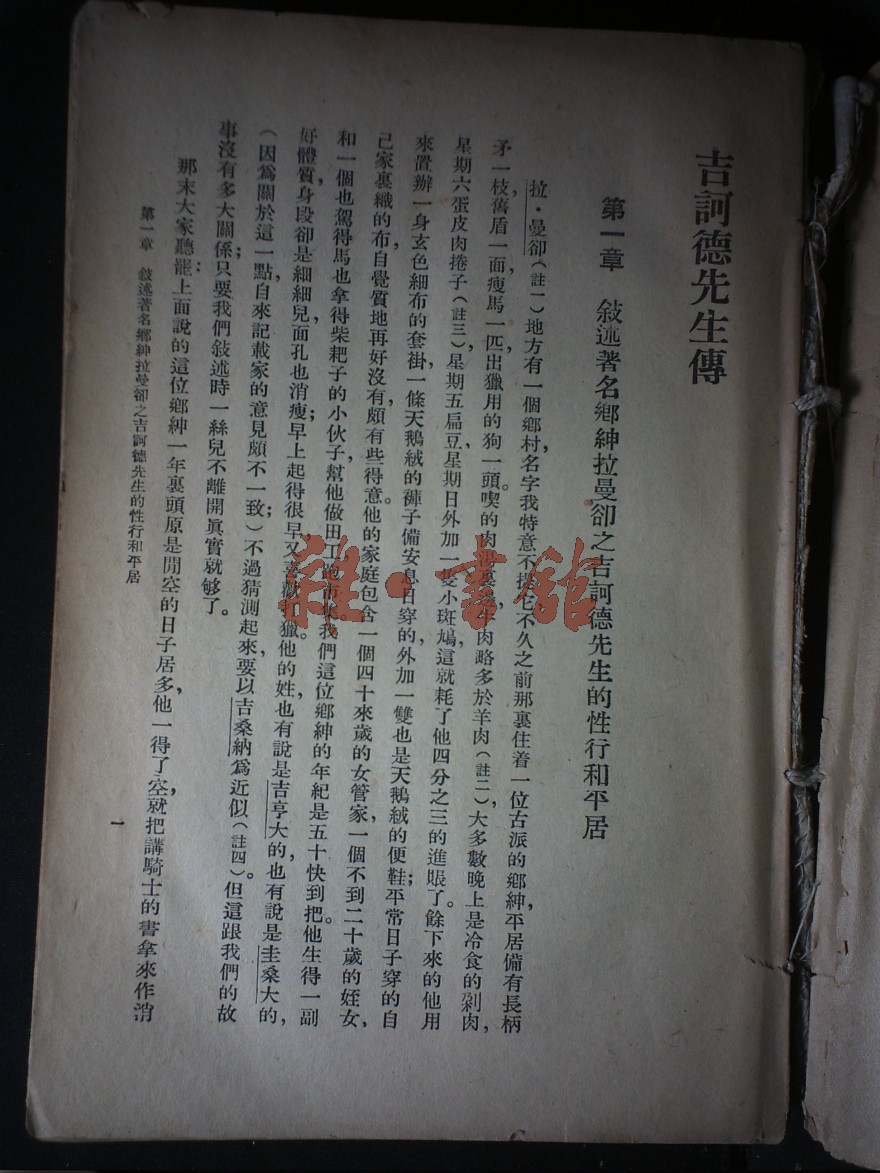 吉訶德先生傳
第一章　敍述著名鄉紳拉曼卻之吉訶德先生的性行和平居
拉·曼卻(註一)地方有一個鄉村，名字我特意不提，它不久之前那裏住着一位古派的鄉紳，平居備有長柄
矛一枝，舊盾一面，瘦馬一匹，出獵用的狗一頭。喫的肉湯裏邊牛肉略多於羊肉(註二)，大多數晚上是冷食的剁肉，
星期六蛋皮肉捲子(註三)，星期五扁豆，星期日外加一隻小斑鳩，這就耗了他四分之三的進賬了。餘下來的他用
來置辦一身玄色細布的套褂，一條天鵝絨的褲子備安息日穿的，外加一雙也是天鵝絨的便鞋；平常日子穿的自
己家裏織的布，自覺質地再好沒有，頗有些得意。他的家庭包含一個四十來歲的女管家，一個不到二十歲的姪女，
和一個也駕得馬也拿得柴耙子的小伙子，幫他做田工跑市集。我們這位鄉紳的年紀是五十快到，把他生得一副
好體質，身段卻是細細兒，面孔也消瘦；早上起得很早，又喜歡打獵。他的姓，也有說是吉亨大的，也有說是圭桑大的，
(因爲關於這一點，自來記載家的意見頗不一致)；不過猜測起來，要以吉桑納爲近似(註四)。但這跟我們的故
事沒有多大關係；只要我們敍述時一絲兒不離開眞實就够了。
那末大家聽罷：上面說的這位鄉紳，一年裏頭原是閒空的日子居多，他一得了空，就把講騎士的書拿來作消
第一章　敍述著名鄉紳拉曼卻之吉訶德先生的性行和平居
一
雜·書館